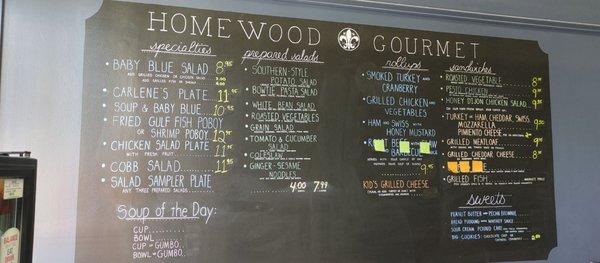 HOMEWOOD GOURMET
specialties
BABY BLUE SALAD 8.95
ADD GRILLED CHICKEN OR CHICKEN SALAD
CARLENE'S PLATE 11.95
SOUP & BABY BLUE
FRIED GULF FISH POBOY
OR SHRIMP POBOY 12.95
CHICKEN SALAD PLATE 11.95
WITH FRESH FRUIT
COBB SALAD 11.95
SALAD SAMPLER PLATE
ANY THREE PREPARED SALADS
Soup of the Day:
CUP
BOWL
CUP OF GUMBO
BOWL OF GUMBO
prepared salads
SOUTHERN-STYLE
POTATO SALAD
BOWTIE PASTA SALAD
WHITE BEAN SALAD
ROASTED VEGETABLES
GRAIN SALAD
TOMATO & CUCUMBER
SALAD
COLESLAW
GINGER-SESAME
NOODLES
4.00 7.99
rollups
SMOKED TURKEY AND
CRANBERRY
GRILLED CHICKEN AND
VEGETABLES
HAM AND SWISS WITH
HONEY MUSTARD
9.95
KID'S GRILLED CHEESE
sandwiches
ROASTED VEGETABLE
PESTO CHICKEN
HONEY DIJON CHICKEN SALAD
TURKEY OR HAM, CHEDDAR, SWISS,
MOZZARELLA
PIMIENTO CHEESE
GRILLED MEATLOAF
GRILLED CHEDDAR CHEESE
GRILLED FISH
sweets
PEANUT BUTTER AND PECAN BROWNIE
BREAD PUDDING WITH WHISKEY SAUCE
SOUR CREAM POUND CAKE
BIG COOKIES: CHOCOLATE CHIP OR
OATMEAL CRANBERRY